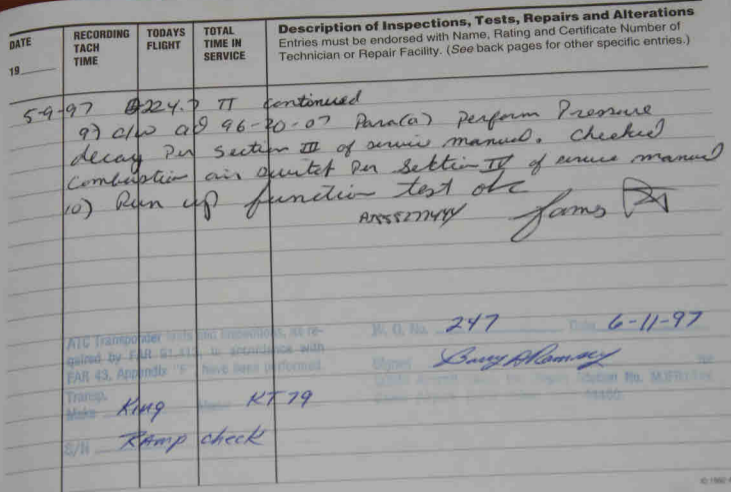 DATE
19
RECORDING TACH TIME
TODAYS FLIGHT
TOTAL TIME IN SERVICE
Description of Inspections, Tests, Repairs and Alterations
Entries must be endorsed with Name, Rating and Certificate Number of
Technician or Repair Facility. (See back pages for other specific entries.)
5-9-97 224.7 TT continued
9) c/w AD 96-20-07 Para(a) Perform Pressure
decay Per Section III of service manual. Checked
Combustion air Per Section IV of service manual
10) Run up function test ok
James
ATC Transponder tests and inspections, as re-
quired by FAR 91.413, in accordance with
FAR 43, Appendix "F" have been performed.
Transp.
Make King KT 79
S/N Ramp check
W. O. No. 247 Date 6-11-97
Signed Barry A Ramsey